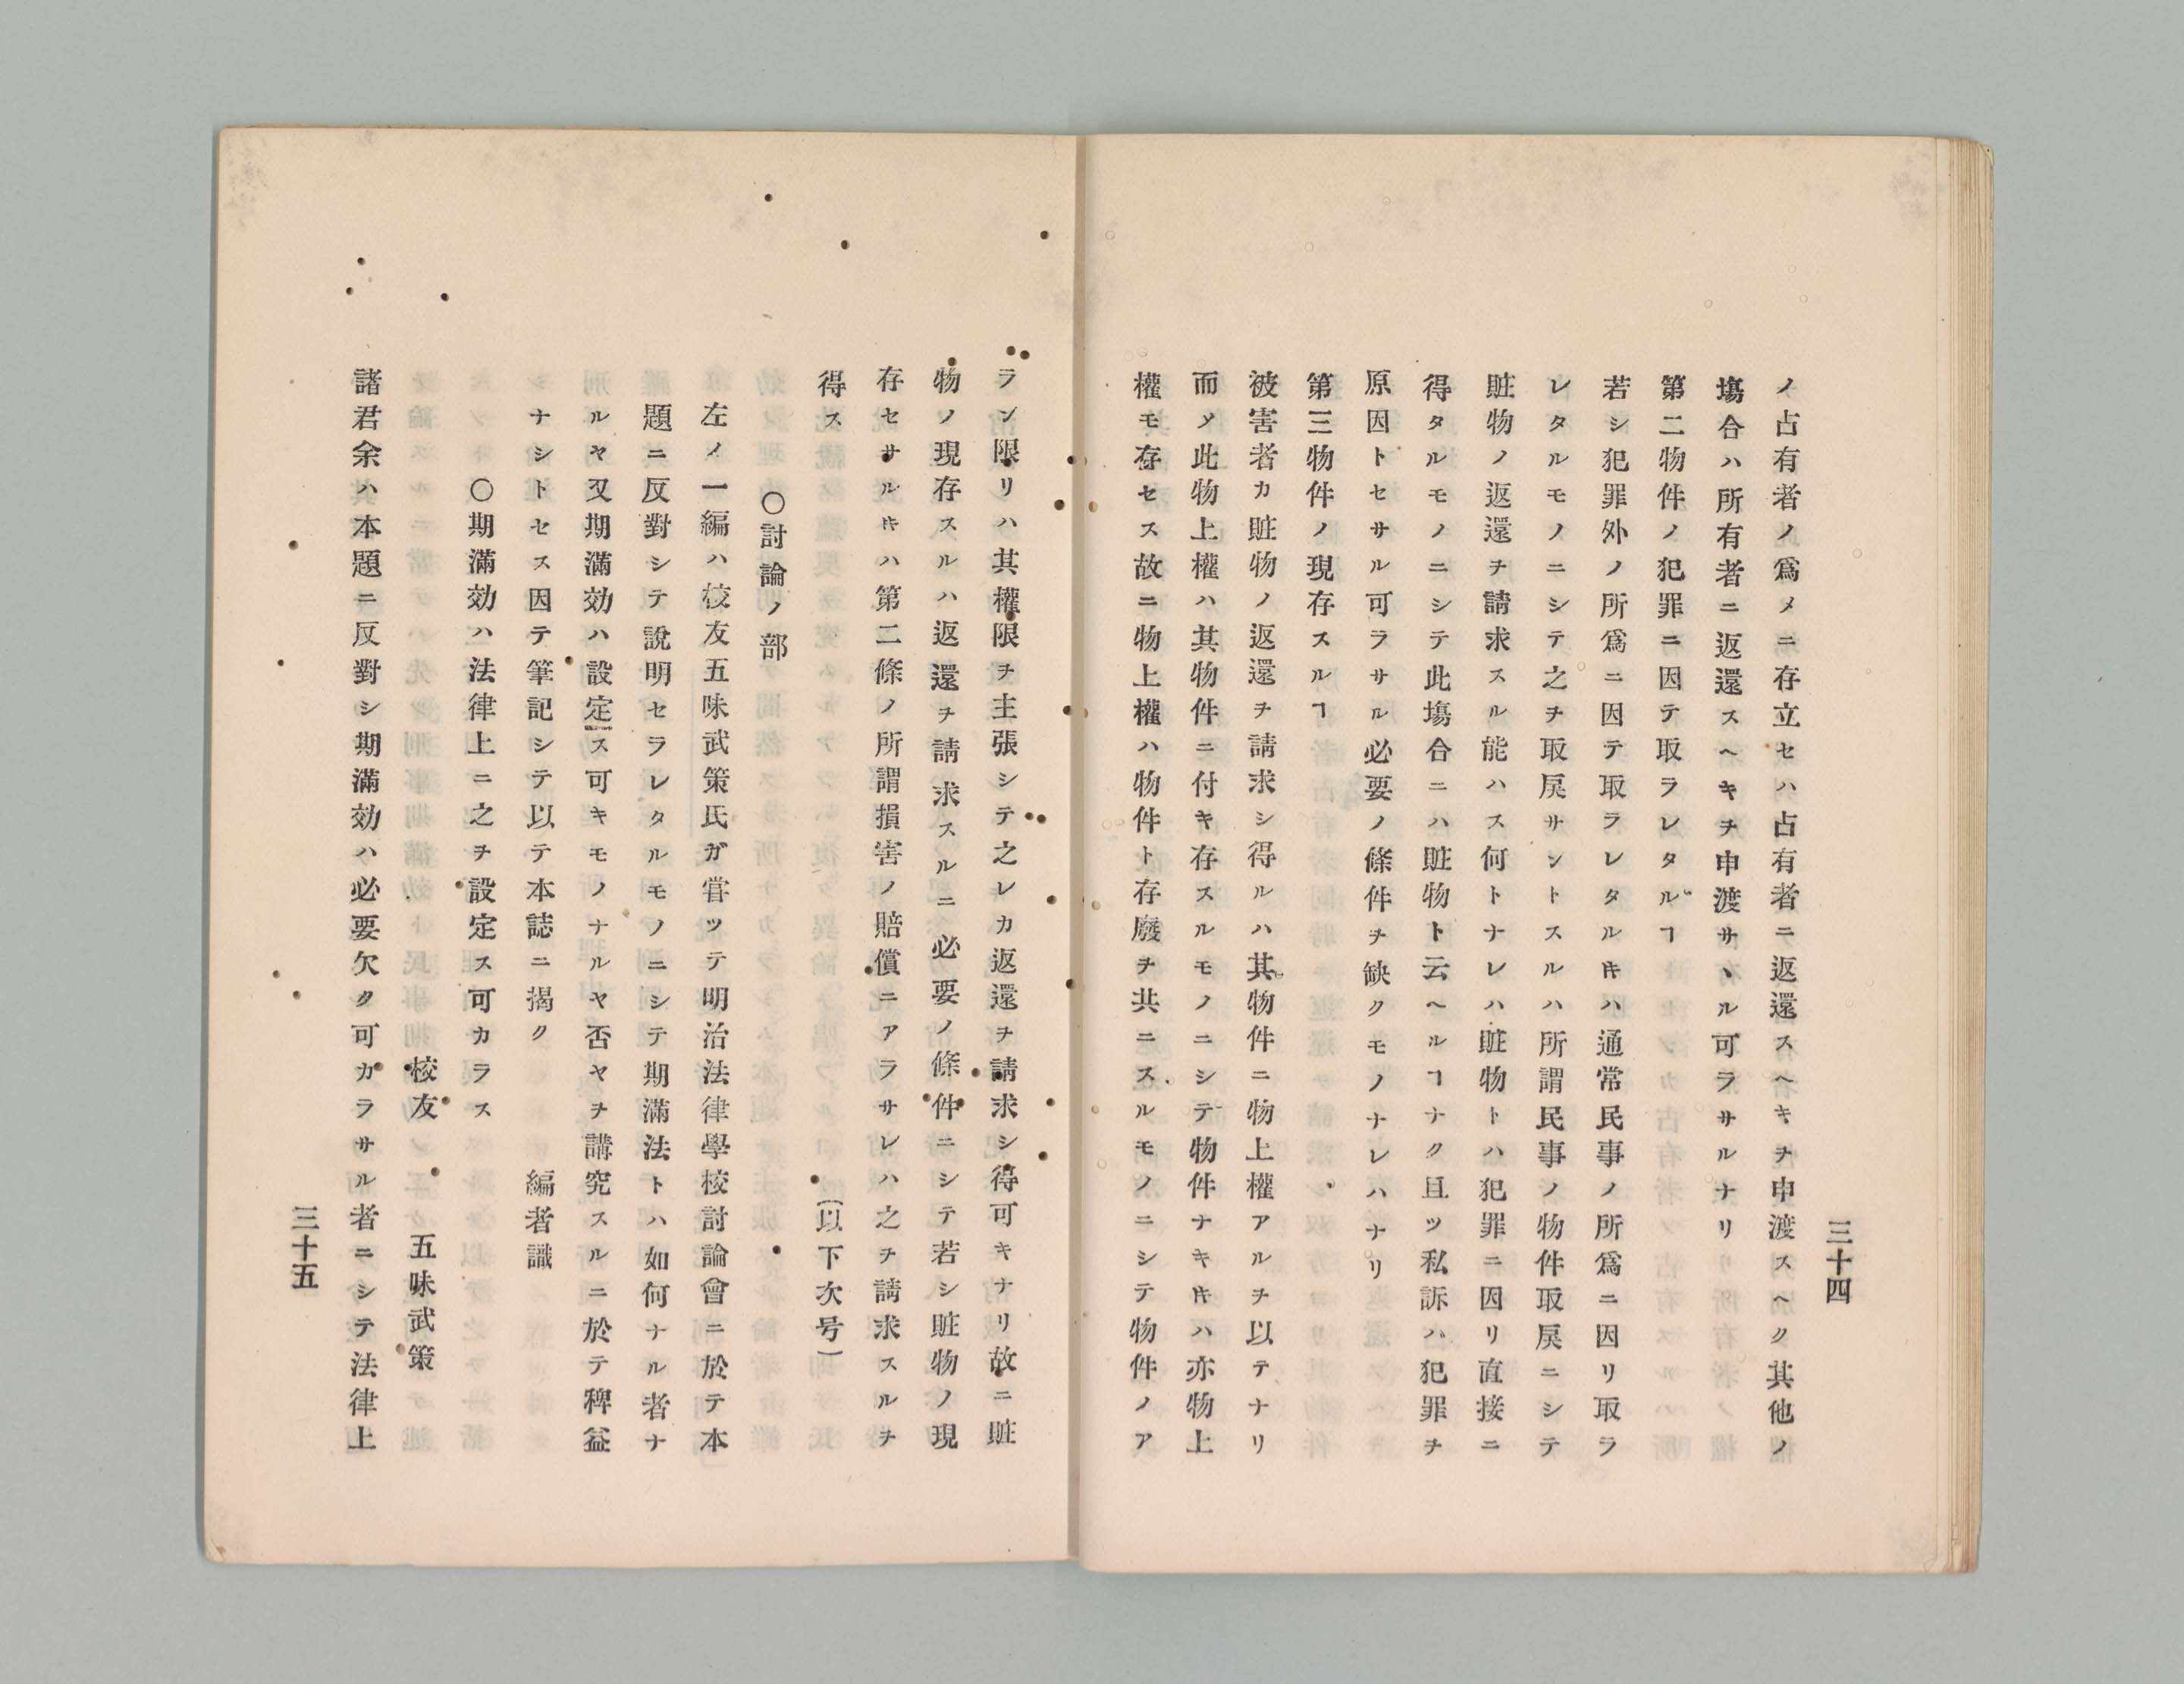 三十四
ノ占有者ノ爲メニ存立セハ占有者ニ返還スヘキヲ申渡スヘク其他ノ
塲合ハ所有者ニ返還スヘキヲ申渡サヽル可ラサルナリ
第二物件ノ犯罪ニ因テ取ラレタルヿ
若シ犯罪外ノ所爲ニ因テ取ラレタルキハ通常民事ノ所爲ニ因リ取ラ
レタルモノニシテ之ヲ取戻サントスルハ所謂民事ノ物件取戻ニシテ
賍物ノ返還ヲ請求スル能ハス何トナレハ賍物トハ犯罪ニ因リ直接ニ
得タルモノニシテ此塲合ニハ賍物ト云ヘルヿナク且ツ私訴ハ犯罪ヲ
原因トセサル可ラサル必要ノ條件ヲ缺クモノナレハナリ
第三物件ノ現存スルヿ
被害者カ賍物ノ返還ヲ請求シ得ルハ其物件ニ物上權アルヲ以テナリ
而〆此物上權ハ其物件ニ付キ存スルモノニシテ物件ナキキハ亦物上
權モ存セス故ニ物上權ハ物件ト存廢ヲ共ニスルモノニシテ物件ノア
ラン限リハ其權限ヲ主張シテ之レカ返還ヲ請求シ得可キナリ故ニ賍
物ノ現存スルハ返還ヲ請求スルニ必要ノ條件ニシテ若シ賍物ノ現
存セサルキハ第二條ノ所謂損害ノ賠償ニアラサレハ之ヲ請求スルヲ
得ス　（以下次号）
〇討論ノ部
左ノ一編ハ校友五味武策氏ガ嘗ツテ明治法律學校討論會ニ於テ本
題ニ反對シテ說明セラレタルモノニシテ期滿法トハ如何ナル者ナ
ルヤ又期滿効ハ設定ス可キモノナルヤ否ヤヲ講究スルニ於テ稗益
ナシトセス因テ筆記シテ以テ本誌ニ揭ク　編者識
〇期滿効ハ法律上ニ之ヲ設定ス可カラス
校友　五味武策
諸君余ハ本題ニ反對シ期滿効ハ必要欠ク可カラサル者ニシテ法律上
三十五